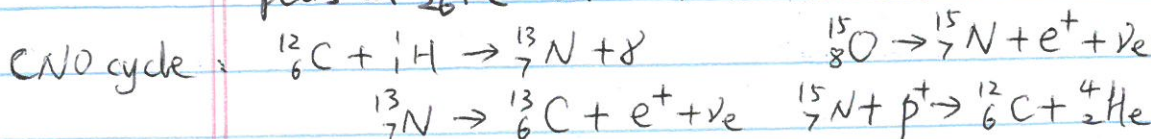 CNO cycle : ¹²₆C + ¹₁H → ¹³₇N + γ    ¹⁵₈O → ¹⁵₇N + e⁺ + νe
¹³₇N → ¹³₆C + e⁺ + νe    ¹⁵₇N + p⁺ → ¹²₆C + ⁴₂He